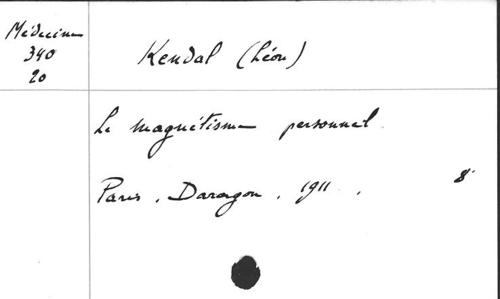 Médecine
340
20
Kendal (Léon)
Le magnétisme personnel.
Paris. Daragon. 1911. 8°